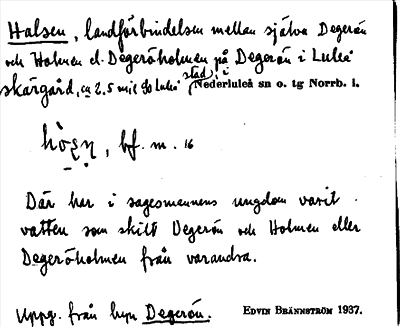 Halsen, landförbindelsen mellan själva Degerön
och Holmen el. Degeröholmen på Degerön i Luleå
skärgård, ca 2.5 mil so Luleå stad, i Nederluleå sn o. tg Norrb. l.
bf. m. 16
Där har i sagesmennens ungdom varit
vatten som skilt Degerön och Holmen eller
Degeröholmen från varandra.
Uppg. från byn Degerön. EDVIN BRÄNNSTRÖM 1937.